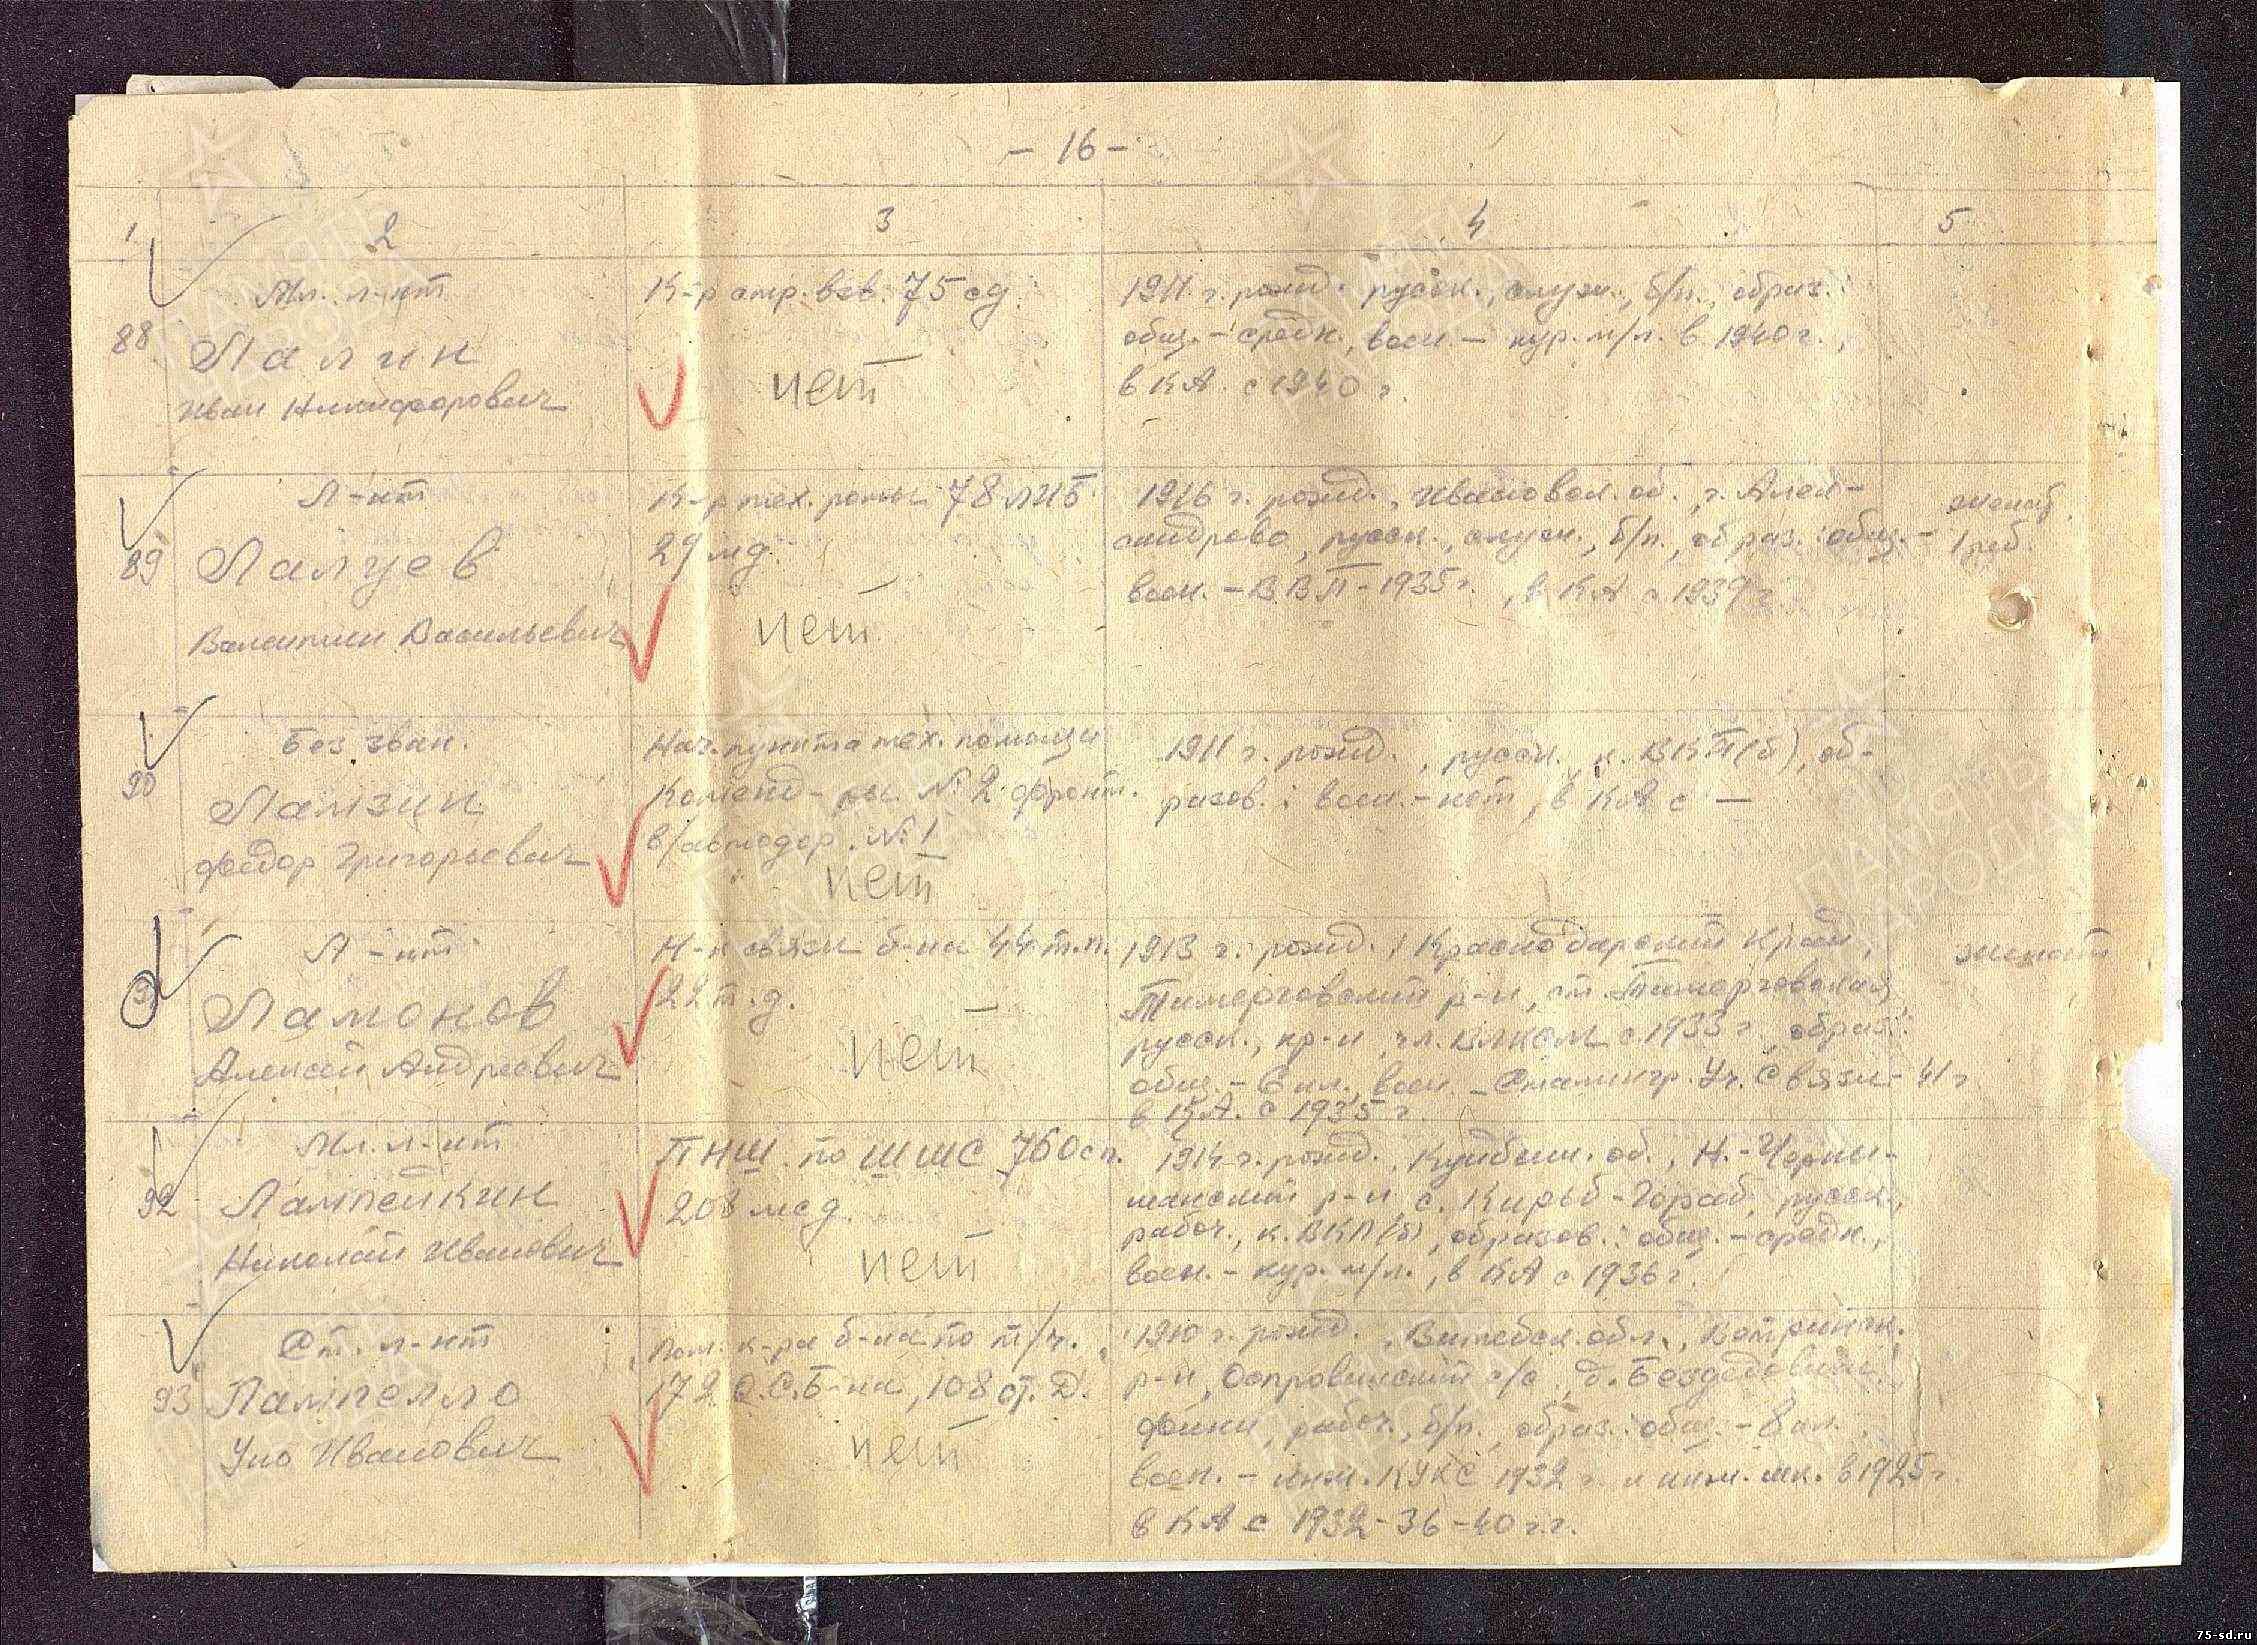 - 16 -
1 2 3 4 5
88
Мл. л-нт
Палкин
Иван Никифорович
К-р стр. взв. 75 сд.
нет
1911 г. рожд. русск., служ., б/п., образ.:
общ. - средн., воен. - кур. м/л. в 1940 г.,
в КА с 1940 г.
89
Л-нт
Палуев
Валентин Васильевич
К-р тех. роты 78 ЛИБ
29 мд.
нет
1916 г. рожд., Ивановск. об., г. Алек-
сандрово, русск., служ., б/п., образ.: общ. -
воен. - ВВП - 1935 г., в КА с 1939 г.
женат,
1 реб.
90
Без зван.
Памзин
Федор Григорьевич
Нач. пункта тех. помощи
Коменд-ры № 2 фронт.
в/автодор. № 1
нет
1911 г. рожд., русск., к. ВКП(б), об-
разов.: воен. - нет, в КА с —
Л-нт
Памонов
Алексей Андреевич
Н-к связи б-на 44 т.п.
22 т.д.
нет
1913 г. рожд., Краснодарский край,
Темерговский р-н, ст. Темерговская
русск., кр-н, чл. ВЛКСМ с 1933 г., образ.:
общ. - 6 кл., воен. - Сталингр. Уч. Связи - 41 г.
в КА с 1935 г.
женат
92
Мл. л-нт
Лампейкин
Николай Иванович
ПНШ по ШШС 760 сп.
208 мсд.
нет
1914 г. рожд., Куйбыш. об., Н.-Черем-
шанский р-н, с. русск.,
рабоч., к. ВКП(б), образов.: общ. - средн.,
воен. - кур. м/л., в КА с 1936 г.
93
Ст. л-нт
Пампелло
Уно Иванович
Пом. к-ра б-на по т/ч.
172 О.С.Б-на, 108 ст. Д.
нет
1910 г. рожд., Витебск. обл.,
р-н, с/с, д.
финн, рабоч., б/п., образ.: общ. - 8 кл.,
воен. - инж. КУКС 1932 г. и инж. шк. в 1925 г.
в КА с 1932-36-40 г.г.
ПАМЯТЬ НАРОДА
75-sd.ru